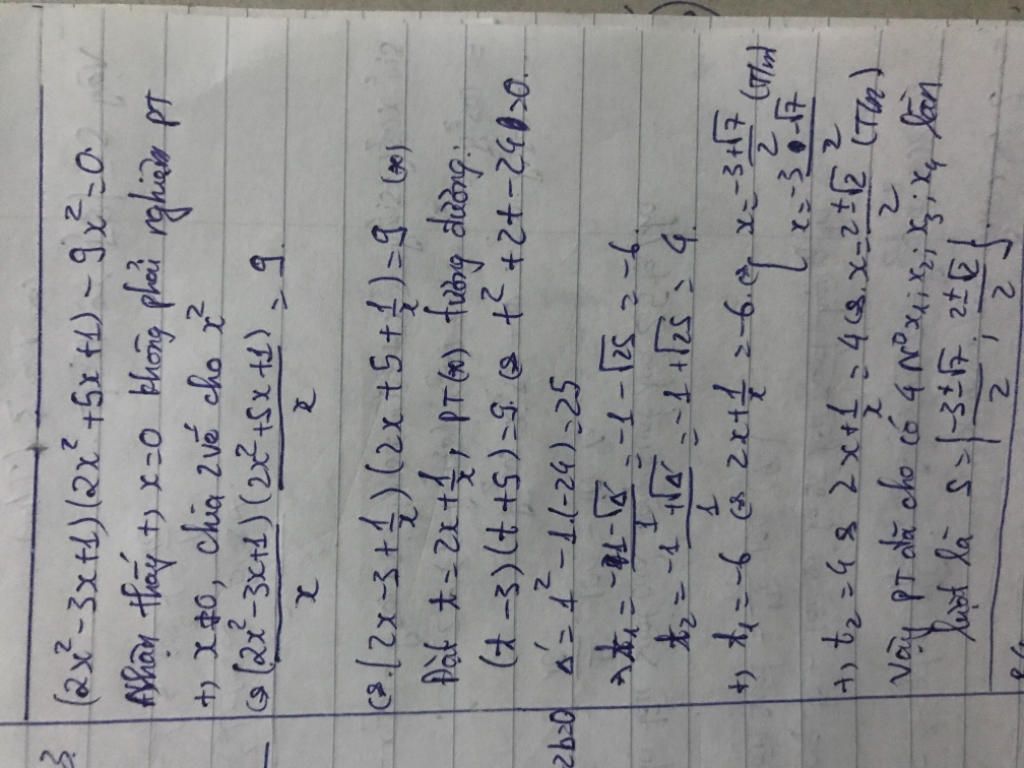 3.
(2x² - 3x + 1)(2x² + 5x + 1) - 9x² = 0
Nhận thấy +) x = 0 không phải nghiệm PT
+) x ≠ 0, chia 2 vế cho x²
⇔ (2x² - 3x + 1)/x · (2x² + 5x + 1)/x = 9.
⇔ (2x - 3 + 1/x)(2x + 5 + 1/x) = 9 (*)
Đặt t = 2x + 1/x, PT (*) tương đương:
(t - 3)(t + 5) = 9. ⇔ t² + 2t - 24 = 0.
2b=0
Δ' = 1² - 1.(-24) = 25
⇒ t₁ = (-1 - √Δ')/1 = -1 - √25 = -6.
t₂ = (-1 + √Δ')/1 = -1 + √25 = 4.
+) t₁ = -6 ⇔ 2x + 1/x = -6. ⇔ [ x = (-3 + √7)/2 (T/m)
x = (-3 - √7)/2
+) t₂ = 4 ⇔ 2x + 1/x = 4 ⇔ x = (2 ± √2)/2 (T/m)
Vậy PT đã cho có 4 N⁰ x₁; x₂; x₃; x₄ lần
lượt là S = {(-3 ± √7)/2; (2 ± √2)/2}.